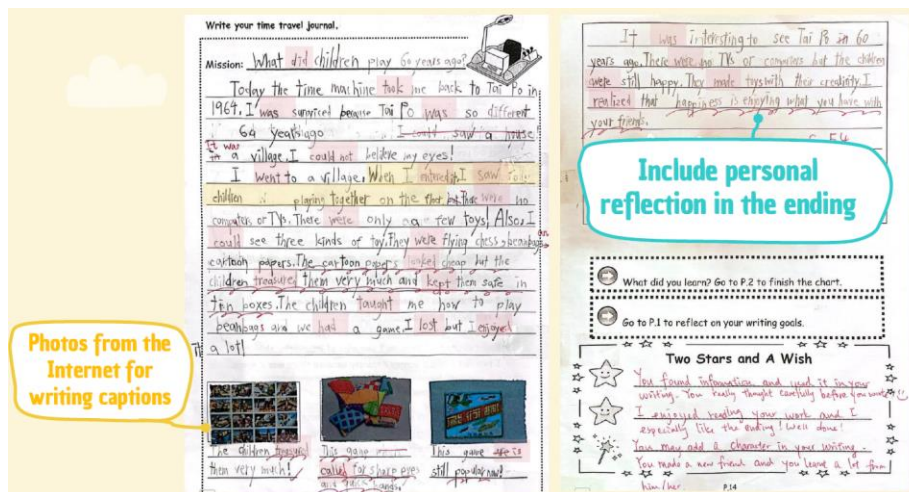 Write your time travel journal.
Mission: What did children play 60 years ago?
Today the time machine took me back to Tai Po in
1964. I was surprised because Tai Po was so different
64 years ago I could saw a house!
It was
a village. I could not believe my eyes!
I went to a village. When I entered it, I saw
children playing together on the floor but there were no
computers or TVs. There were only a few toys. Also, I
could see three kinds of toy. They were flying chess, beanbags,
cartoon papers. The cartoon papers looked cheap but the
children treasured them very much and kept them safe in
tin boxes. The children taught me how to play
beanbags and we had a game. I lost but I enjoyed
a lot!
Photos from the
Internet for
writing captions
The children treasured
them very much!
This game
called for sharp eyes
and quick hands!
This game is
still popular now!
It was interesting to see Tai Po in 60
years ago. There were no TVs or computers but the children
were still happy. They made toys with their creativity. I
realized that happiness is enjoying what you have with
your friends.
Include personal
reflection in the ending
What did you learn? Go to P.2 to finish the chart.
Go to P.1 to reflect on your writing goals.
Two Stars and A Wish
You found information and used it in your
writing. You really thought carefully before you wrote
I enjoyed reading your work and I
especially like the ending! Well done!
You may add a character in your writing.
You made a new friend and you learn a lot from
him/her.
P.14